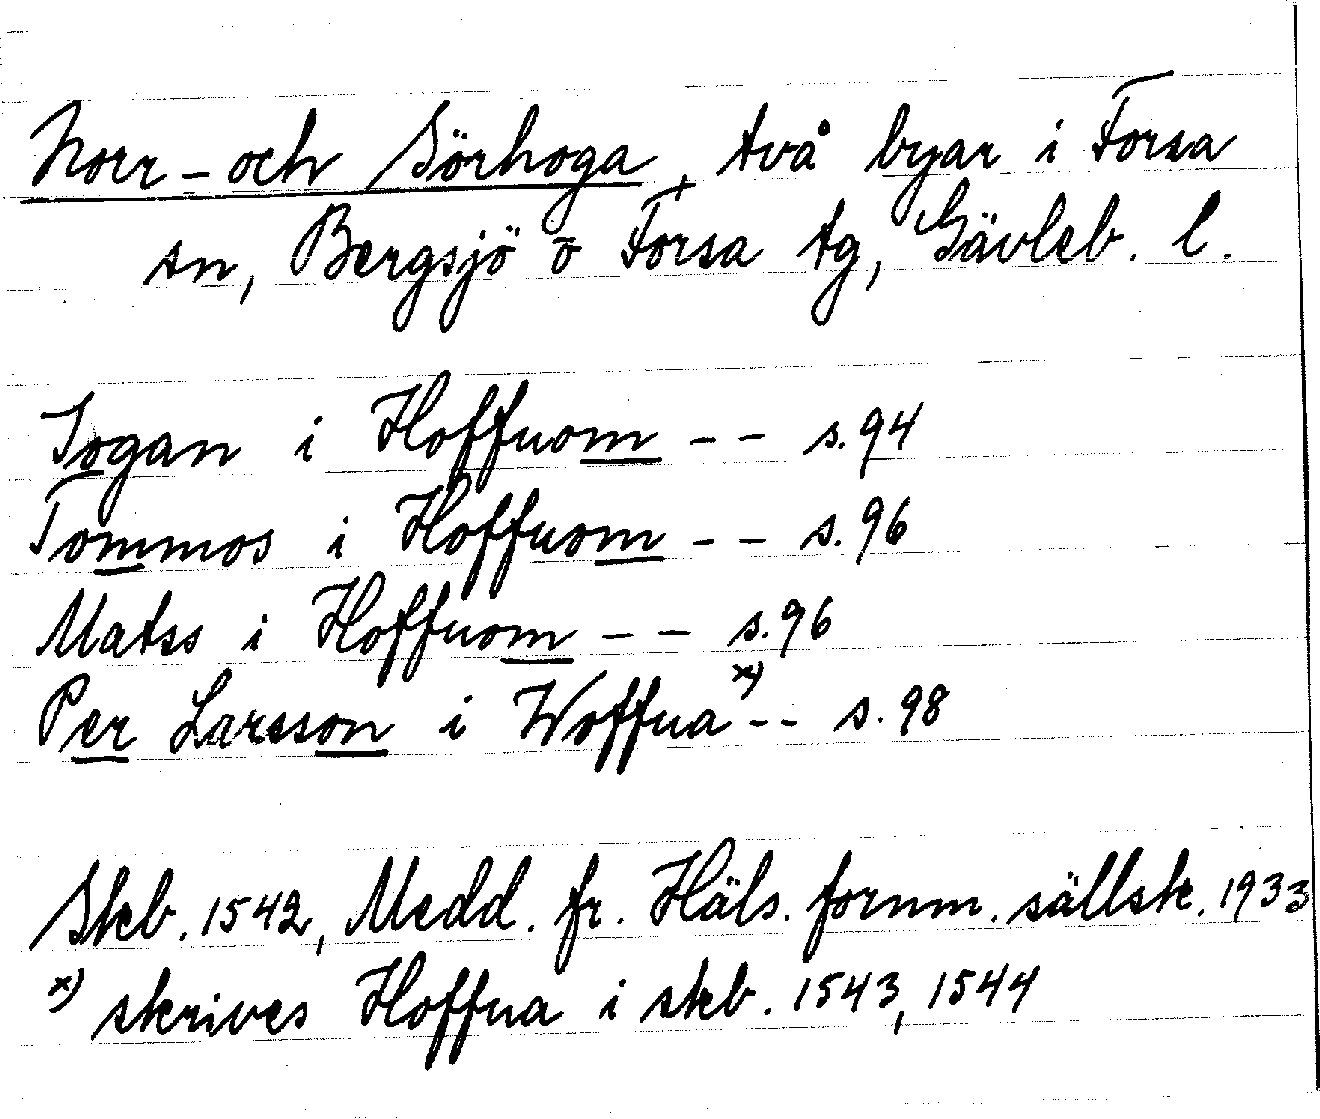 Norr- och Sörhoga, två byar i Forsa
sn, Bergsjö o Forsa tg, Gävleb. l.
Jogan i Hoffuom -- s.94
Tommos i Hoffuom -- s.96
Matss i Hoffuom -- s.96
Per Larsson i Woffua x) -- s.98
Skb. 1542, Medd. fr. Häls. fornm. sällsk. 1933
x) skrives Hoffua i skb. 1543, 1544